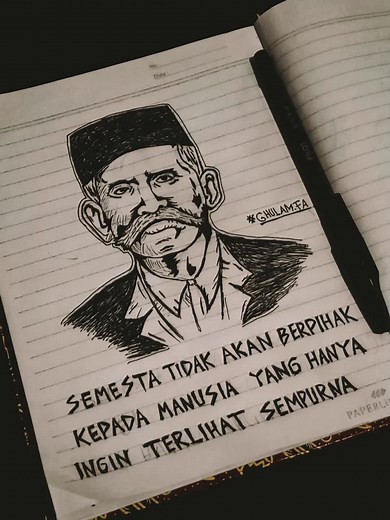 #GHULAM.FA
SEMESTA TIDAK AKAN BERPIHAK
KEPADA MANUSIA YANG HANYA
INGIN TERLIHAT SEMPURNA